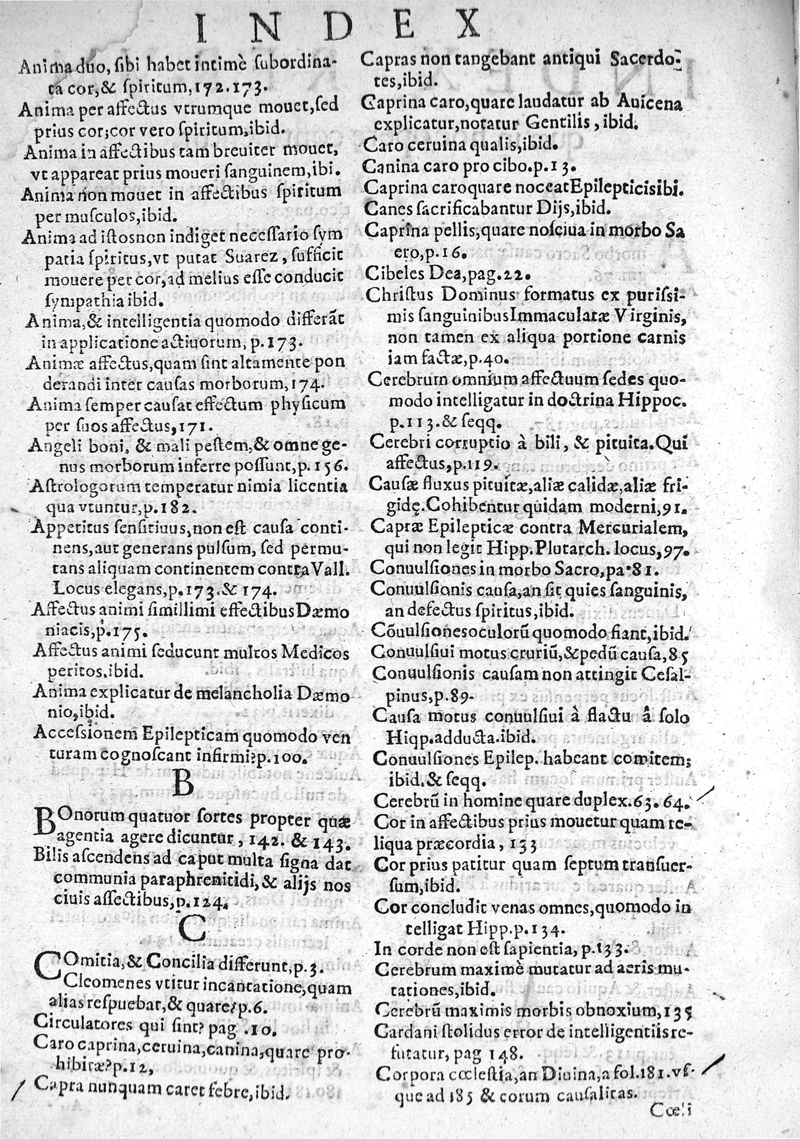 INDEX
Anima duo, sibi habet intimè subordina-
ta cor, & spiritum, 172. 173.
Anima per affectus vtrumque mouet, sed
prius cor; cor vero spiritum, ibid.
Anima in affectibus tam breuiter mouet,
vt appareat prius moueri sanguinem, ibi.
Anima non mouet in affectibus spiritum
per musculos, ibid.
Anima ad istos non indiget necessario sym
patia spiritus, vt putat Suarez, sufficit
mouere per cor, ad melius esse conducit
sympathia ibid.
Anima, & intelligentia quomodo differãt
in applicatione actiuorum, p. 173.
Animæ affectus, quam sint altamente pon
derandi inter causas morborum, 174.
Anima semper causat effectum physicum
per suos affectus, 171.
Angeli boni, & mali pestem, & omne ge-
nus morborum inferre possunt, p. 156.
Astrologorum temperatur nimia licentia
qua vtuntur, p. 182.
Appetitus sensitiuus, non est causa conti-
nens, aut generans pulsum, sed permu-
tans aliquam continentem contra Vall.
Locus elegans, p. 173. & 174.
Affectus animi simillimi effectibus Dæmo
niacis, p. 175.
Affectus animi seducunt multos Medicos
peritos. ibid.
Anima explicatur de melancholia Dæmo
nio, ibid.
Accessionem Epilepticam quomodo ven
turam cognoscant infirmi? p. 100.
B
BOnorum quatuor sortes propter quæ
agentia agere dicuntur, 142. & 143.
Bilis ascendens ad caput multa signa dat
communia paraphrenitidi, & alijs nos
ciuis affectibus, p. 124.
C
COmitia, & Concilia differunt, p. 3.
Cleomenes vtitur incantatione, quam
alias respuebat, & quare? p. 6.
Circulatores qui sint? pag. 10.
Caro caprina, ceruina, canina, quare pro-
hibitæ? p. 12,
Capra nunquam caret febre, ibid.
Capras non tangebant antiqui Sacerdo-
tes, ibid.
Caprina caro, quare laudatur ab Auicena
explicatur, notatur Gentilis, ibid.
Caro ceruina qualis, ibid.
Canina caro pro cibo. p. 13.
Caprina caro quare noceat Epilepticis ibi.
Canes sacrificabantur Dijs, ibid.
Caprina pellis, quare nosciua in morbo Sa
cro, p. 16.
Cibeles Dea, pag. 22.
Christus Dominus formatus ex purissi-
mis sanguinibus Immaculatæ Virginis,
non tamen ex aliqua portione carnis
iam factæ, p. 40.
Cerebrum omnium affectuum sedes quo-
modo intelligatur in doctrina Hippoc.
p. 113. & seqq.
Cerebri corruptio à bili, & pituita. Qui
affectus, p. 119.
Causæ fluxus pituitæ, aliæ calidæ, aliæ fri-
gidę. Cohibentur quidam moderni, 91.
Capræ Epilepticæ contra Mercurialem,
qui non legit Hipp. Plutarch. locus, 97.
Conuulsiones in morbo Sacro, pa. 81.
Conuulsionis causa, an sit quies sanguinis,
an defectus spiritus, ibid.
Cõuulsiones oculorũ quomodo fiant, ibid.
Conuulsiui motus cruriũ, & pedũ causa, 85
Conuulsionis causam non attingit Cesal-
pinus, p. 89.
Causa motus conuulsiui à flatu à solo
Hiqp. adducta. ibid.
Conuulsiones Epilep. habeant comitem;
ibid. & seqq.
Cerebrũ in homine quare duplex. 63. 64.
Cor in affectibus prius mouetur quam re-
liqua præcordia, 133
Cor prius patitur quam septum transuer-
sum, ibid.
Cor concludit venas omnes, quomodo in
telligat Hipp. p. 134.
In corde non est sapientia, p. 133.
Cerebrum maximè mutatur ad aeris mu-
tationes, ibid.
Cerebrũ maximis morbis obnoxium, 135
Cardani stolidus error de intelligentiis re-
futatur, pag 148.
Corpora cœlestia, an Diuina, a fol. 181. vs-
que ad 185 & eorum causalitas.
Cœli